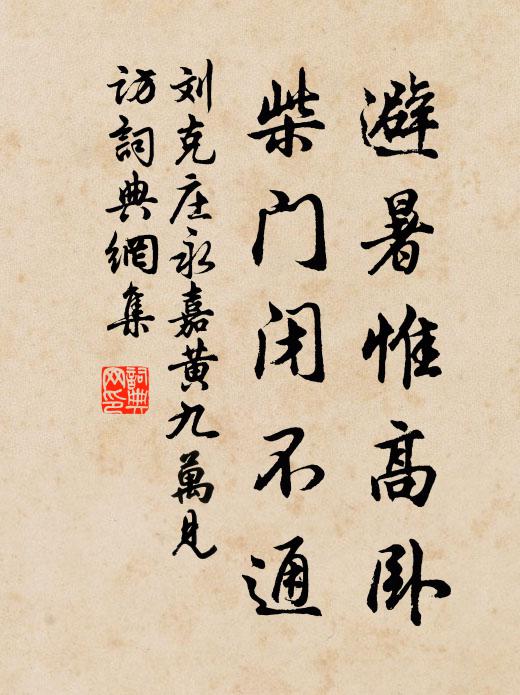 避暑惟高卧
柴门闭不通
刘克庄永嘉黄九萬見
访詞典網集
詞典
网印